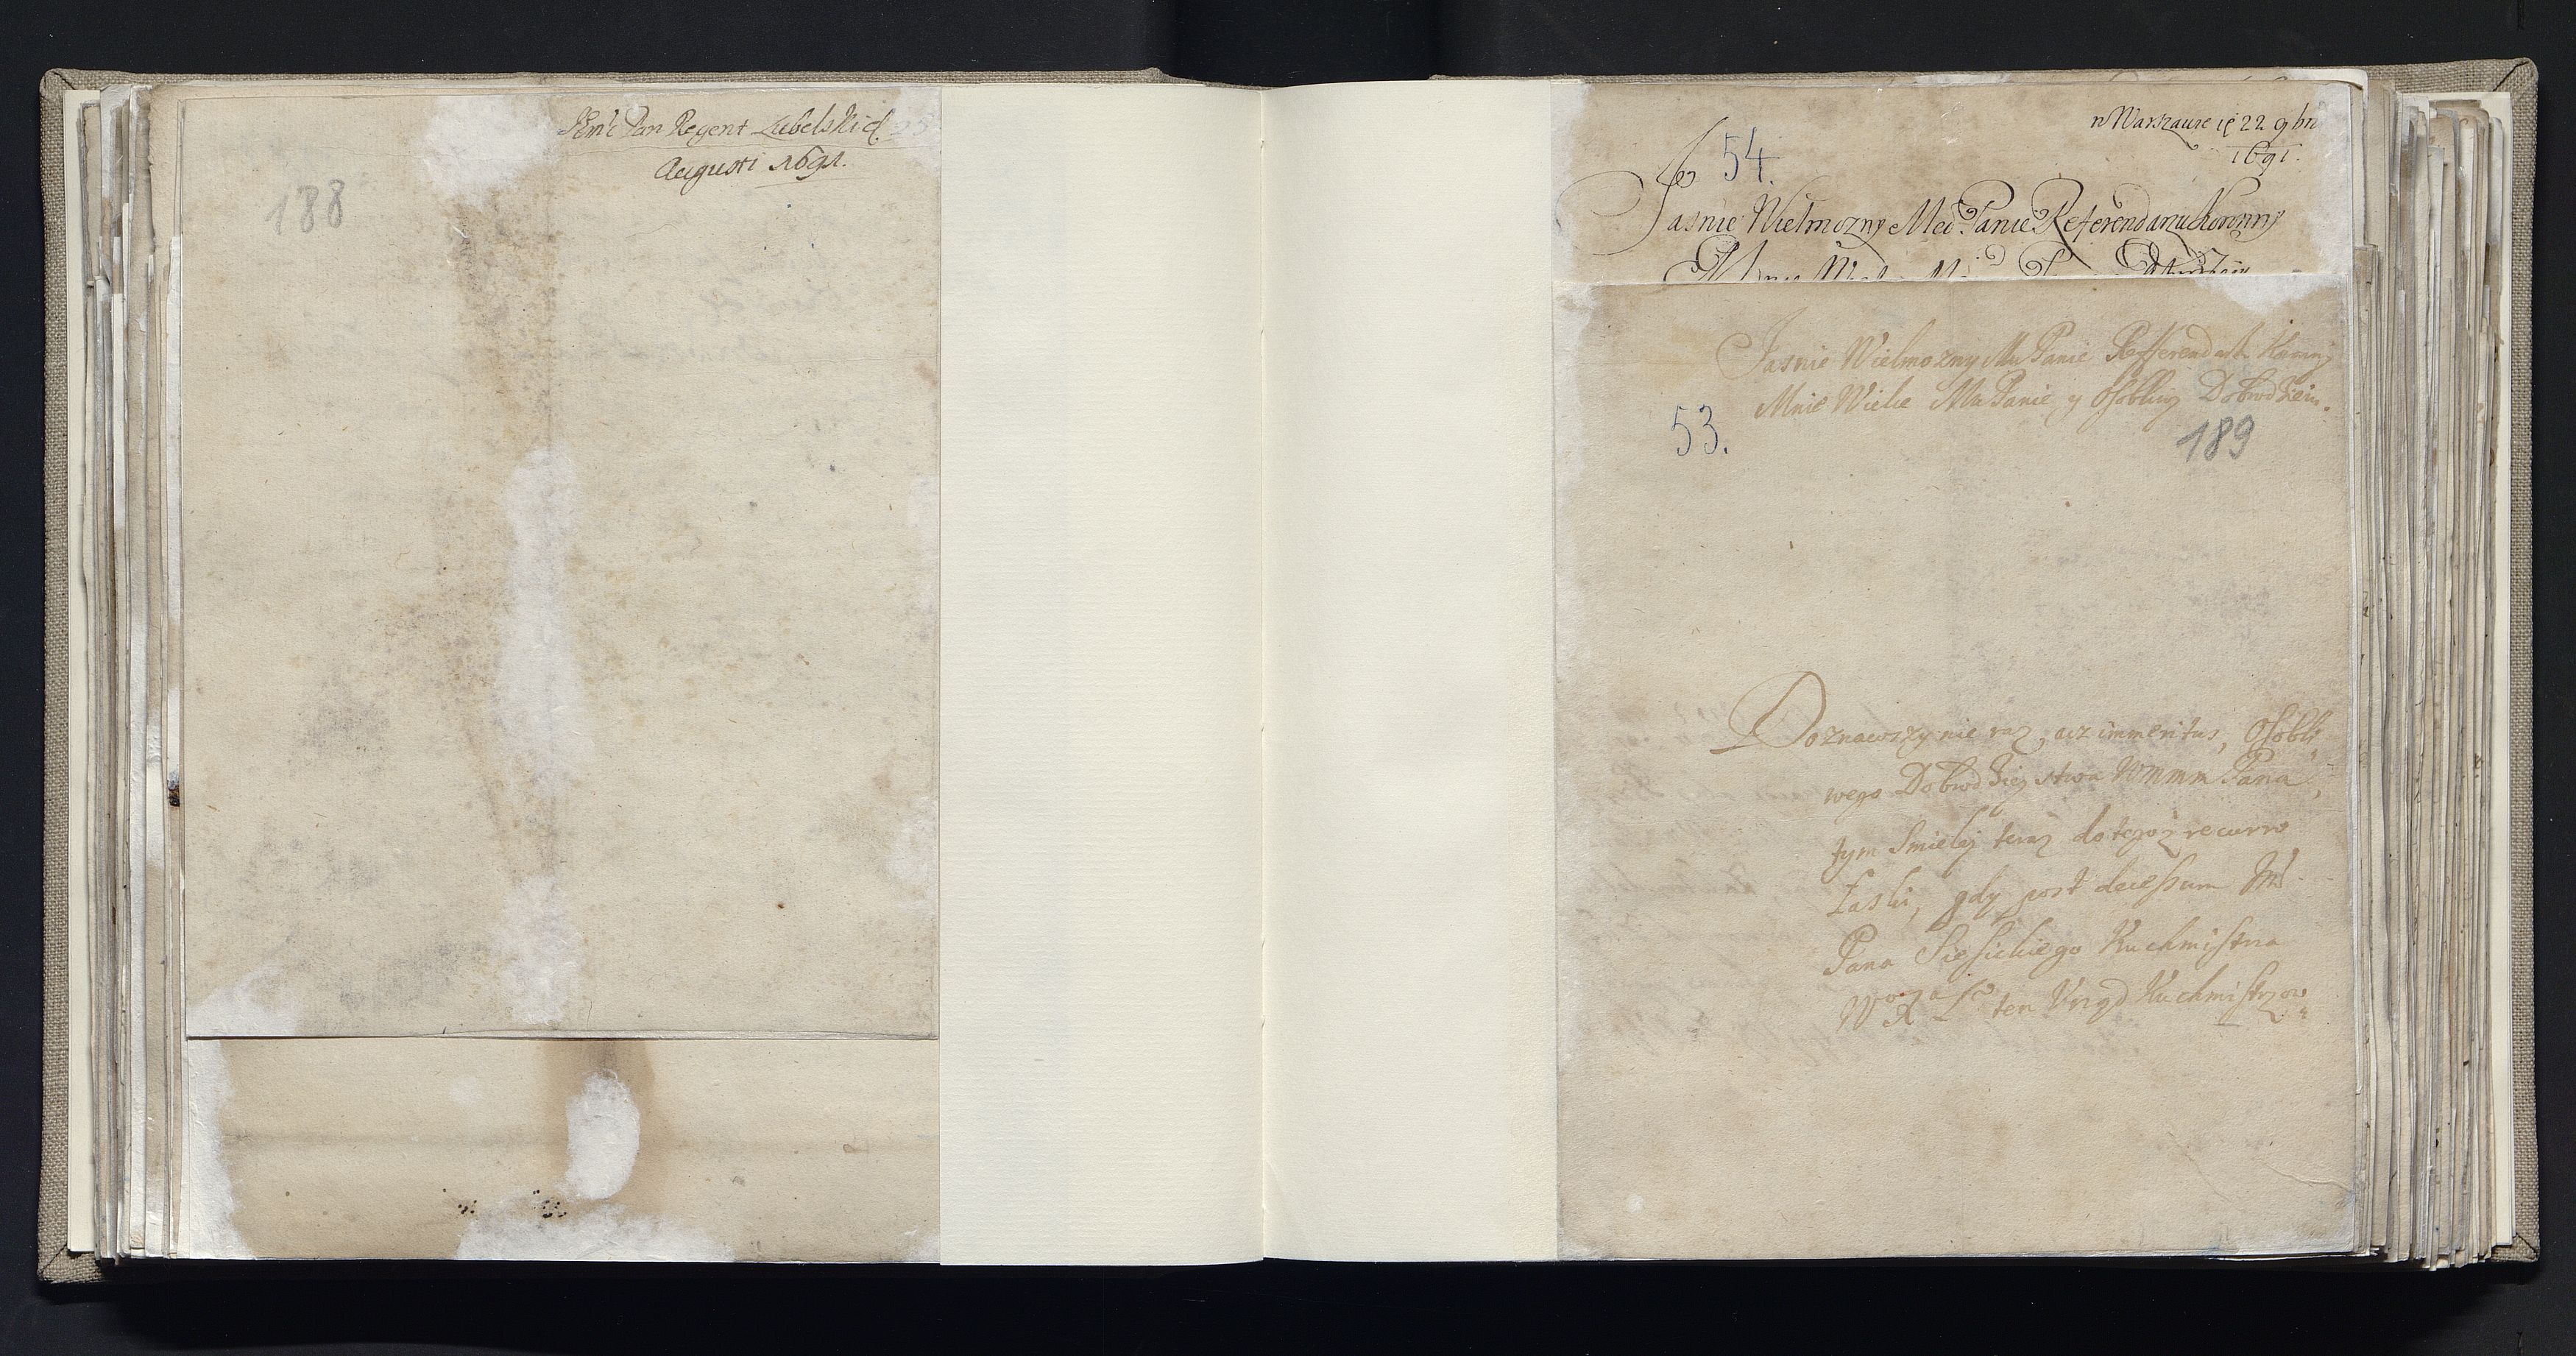 JEmć Pan Regent Lubelski d. 23
Augusti 1691.
188
w Warszawie 22 9bri
1691.
54.
Jasnie Wielmozny Mći Panie Referendarzu Koronny
Jasnie Wielmozny Mu Panie Refferendarzu Koronny
Mnie Wielce Mu Panie y Osobliwy Dobrodzieiu.
53.
189
Doznawszy nie raz, acz immeritus, Osobli
wego Dobrodzieystwa WMMM Pana,
tym Smieley teraz do teyoż recurro
Łaski, gdy post decessum Jmć
Pana Siesickiego Kuchmistrza
WoXa Lo ten Vrząd Kuchmistrzow